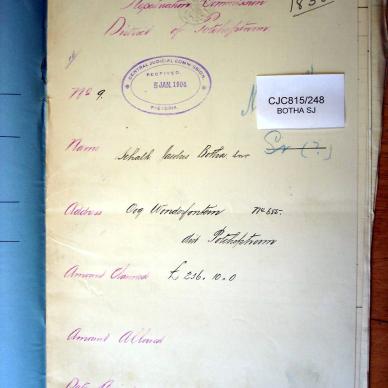 Repatriation Commission
District of Potchefstroom
CENTRAL JUDICIAL COMMISSION
RECEIVED
5 JAN. 1904
PRETORIA
No 9.
CJC815/248
BOTHA SJ
Name Schalk Jacobus Botha Snr
Sr (?)
Address Oog Wonderfontein No 655.
dist Potchefstroom
Amount Claimed £ 236. 10. 0
Amount Allowed